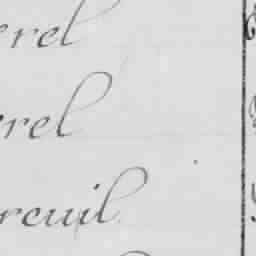 erel
rel
reuil